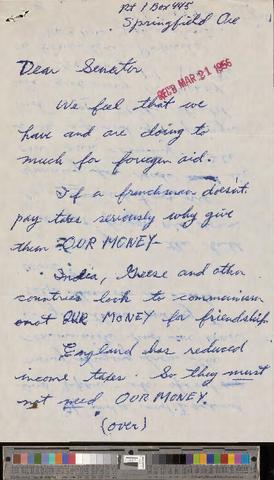 Rt 1 Box 445
Springfield Ore
REC'D MAR 21 1956
Dear Senator
We feel that we
have and are doing to
much for foriegen aid.
If a frenchman doesn't
pay taxes seriously why give
them OUR MONEY
India, Greese and other
countries look to communism
not OUR MONEY for friendship.
England has reduced
income taxes. So they must
not need OUR MONEY.
(over)